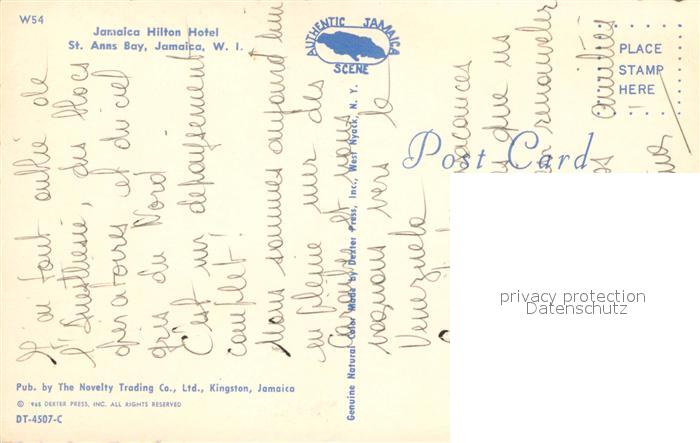 W54
Jamaica Hilton Hotel
St. Anns Bay, Jamaica, W. I.
AUTHENTIC JAMAICA
SCENE
PLACE
STAMP
HERE
Post Card
J'ai tout oublié de
l'Anesthésie, des blocs
opératoires et du ciel
gris du Nord
C'est un dépaysement
complet!
Nous sommes aujourd'hui
en pleine mer des
Caraïbes et nous
voguons vers le
Venezuela
vacances
que
renouveler
amitiés
Genuine Natural Color Made by Dexter Press, Inc., West Nyack, N. Y.
privacy protection
Datenschutz
Pub. by The Novelty Trading Co., Ltd., Kingston, Jamaica
© 1965 DEXTER PRESS, INC. ALL RIGHTS RESERVED
DT-4507-C